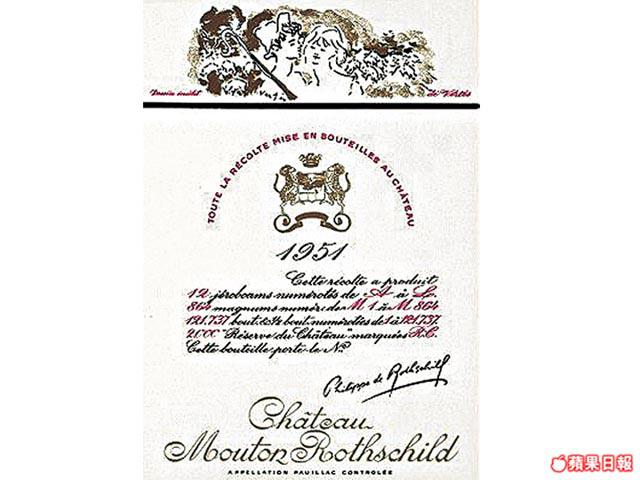 Dessin inédit de Vertès
TOUTE LA RÉCOLTE MISE EN BOUTEILLES AU CHÂTEAU
1951
Cette récolte a produit
12 jéroboams numérotés de A à L,
864 magnums numér: de M 1 à M 864
121.737 bout: & ½ bout: numérotées de 1 à 121.737
2000 "Réserve du Château" marquées R.C.
Cette bouteille porte le No
Philippe de Rothschild
Château
Mouton Rothschild
APPELLATION PAUILLAC CONTROLÉE
蘋果日報